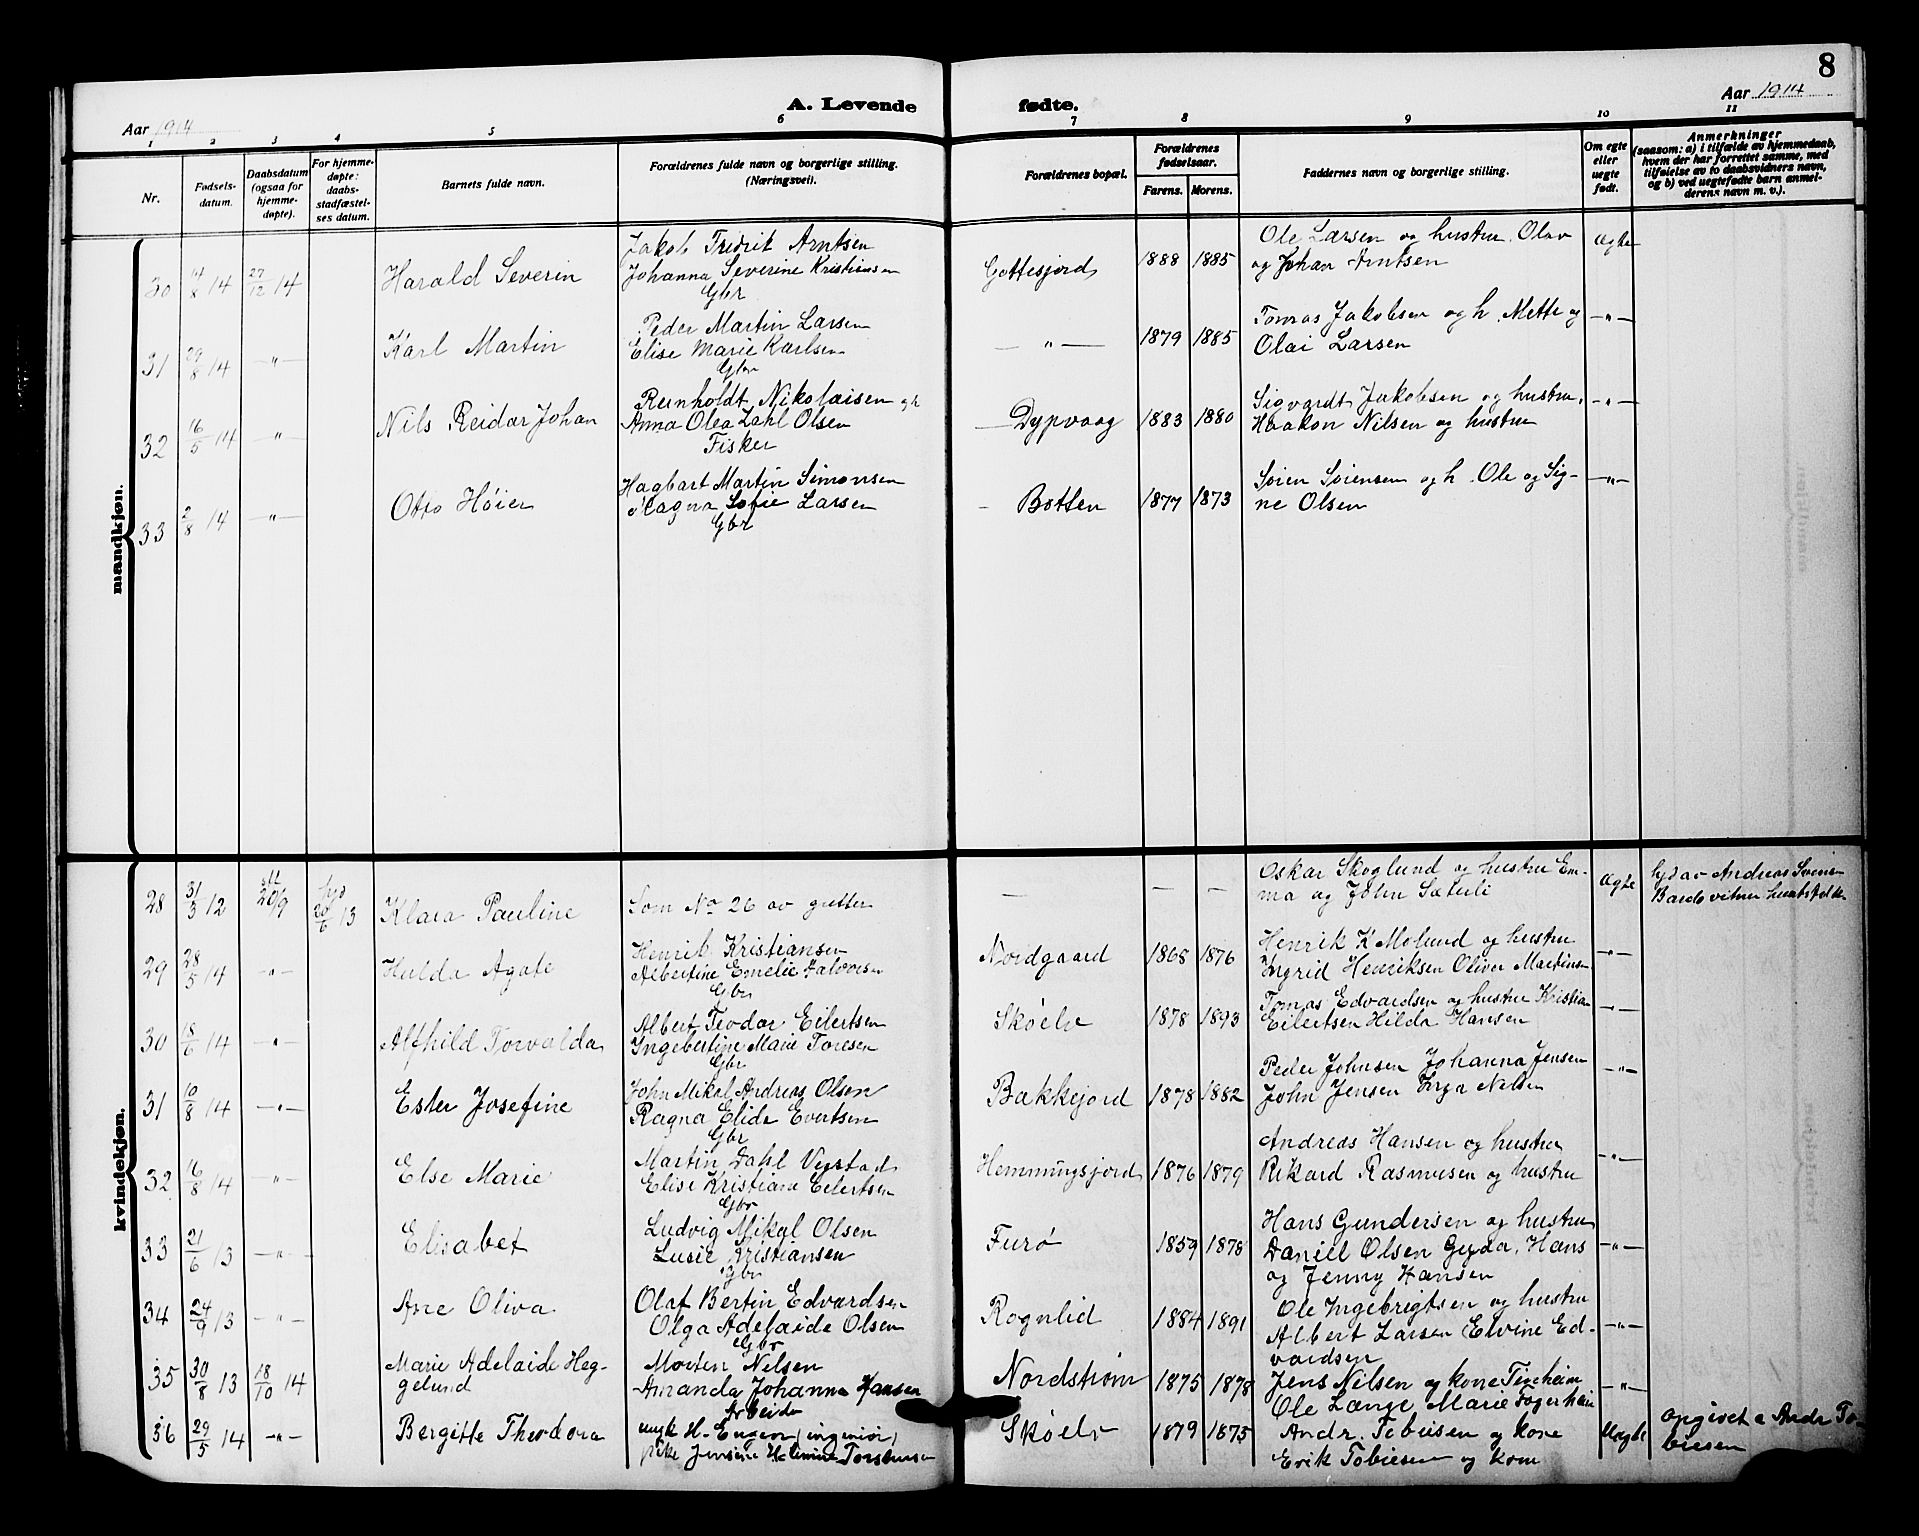 8
A. Levende fødte.
Aar 1914
Aar 1914
1 2 3 4 5 6 7 8 9 10 11
Nr.
Fødsels-
datum.
Daabsdatum
(ogsaa for
hjemme-
døpte).
For hjemme-
døpte:
daabs-
stadfæstel-
ses datum.
Barnets fulde navn.
Forældrenes fulde navn og borgerlige stilling.
(Næringsvei).
Forældrenes bopæl.
Forældrenes
fødselsaar.
Farens. Morens.
Faddernes navn og borgerlige stilling.
Om egte
eller
uegte
født.
Anmerkninger
(saasom: a) i tilfælde av hjemmedaab,
hvem der har forrettet samme, med
tilføielse av to daabsvidners navn,
og b) ved uegtefødte barn anmel-
derens navn m. v.).
mandkjøn.
30 14/8 14 27/12 14 Harald Severin
Jakob Fredrik Arntsen
Johanna Severine Kristiansen
Gbr
Gottesjord 1888 1885
Ole Larsen og hustru. Olav
og Johan Arntsen
Ægte
31 29/8 14 -"- Karl Martin
Peder Martin Larsen
Elise Marie Karlsen
Gbr
-"- 1879 1885
Tomas Jakobsen og h. Mette og
Olai Larsen
-"-
32 16/5 14 -"- Nils Reidar Johan
Reinholdt Nikolaisen og h
Anna Olea Zahl Olsen
Fisker
Dypvaag 1883 1880
Sigvardt Jakobsen og hustru,
Haakon Nilsen og hustru
-"-
33 2/8 14 -"- Otto Høier
Hagbart Martin Simonsen
Magna Sofie Larsen
Gbr
Botten 1877 1873
Søren Sørensen og h. Ole og Sig-
ne Olsen
-"-
kvindekjøn.
28 31/3 12 20/9 20/6 13 Klara Pauline
Som No 26 av gutter
- - -
Oskar Skoglund og hustru Em-
ma og John Sæterli
Ægte
hjd av Andreas
29 28/5 14 -"- Hulda Agate
Henrik Kristiansen
Albertine Emelie
Gbr
Nordgaard 1868 1876
Henrik K Molund og hustru
Ingrid Henriksen Oliver Martins
-"-
30 18/6 14 -"- Alfhild Torvalda
Albert Teodor Eilertsen
Ingebertine Marie Toresen
Gbr
Skøelv 1878 1893
Tomas Edvardsen og hustru Kristian
Eilertsen Hilda Hansen
-"-
31 10/8 14 -"- Ester Josefine
John Mikal Andreas Olsen
Ragna Elida Evertsen
Gbr
Bakkejord 1878 1882
Peder Johnsen Johanna Jensen
John Jensen Inga Nelsen
-"-
32 16/8 14 -"- Else Marie
Martin Dahl Vegstad
Elise Kristiane Eilertsen
Gbr
Hemmingsjord 1876 1879
Andreas Hansen og hustru
Rikard Rasmusen og hustru
-"-
33 21/6 13 -"- Elisabet
Ludvig Mikal Olsen
Lusie Kristiansen
Gbr
Furø 1859 1878
Hans Gundersen og hustru
Daniel Olsen Gyda, Hans
og Jenny Hansen
-"-
34 24/9 13 -"- Ane Oliva
Olaf Bertin Edvardsen
Olga Adelaide Olsen
Gbr
Rognlid 1884 1891
Ole Ingebrigtsen og hustru
Albert Larsen Elvine Ed-
vardsen
-"-
35 30/8 13 18/10 14 Marie Adelaide Heg-
gelund
Morten Nelsen
Amanda Johanna Hansen
Arbeider
Nordstrøm 1875 1878
Jens Nilsen og kone
Ole Lange Marie Fagerheim
-"-
36 29/5 14 -"- Bergitte Theodora
ungk H. Engson, ingeniør,
pike Jensine
Skøelv 1879 1875
Andr. Tobiesen og kone
Erik Tobiesen og kone
Uægte
opgivet a Andr To-
biesen